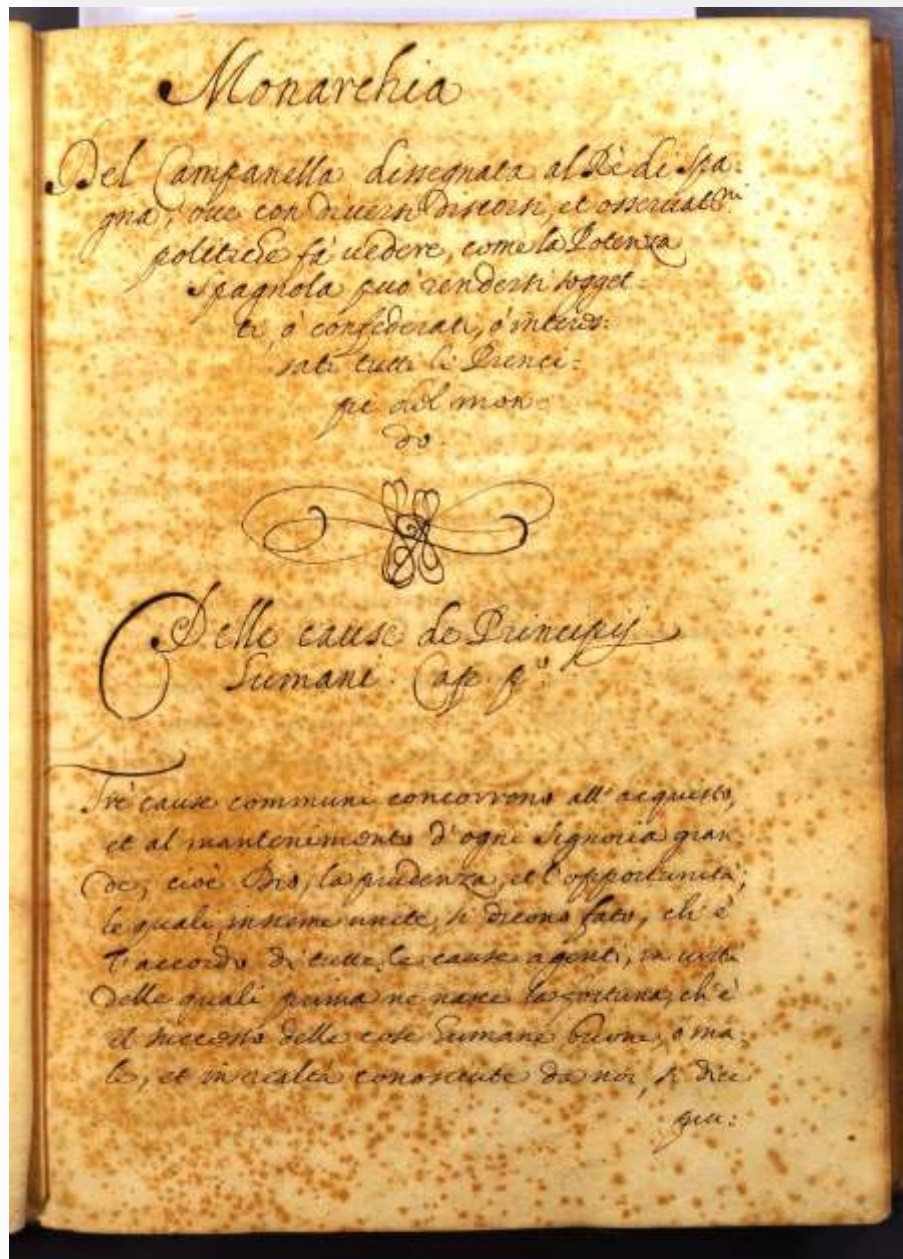 Monarchia
Del Campanella dissegnata al Rè di Spa:
gna, oue con diuersi discorsi, et osseruat.ni
politiche fà uedere, come la Potenza
Spagnola può rendersi sogget:
ti, ò confederati, ò interes:
sati tutti li Prenci:
pi del mon:
do.
Delle cause de Principij
humani. Cap. p.o
Trè cause communi concorrono all' acquisto,
et al mantenimento d' ogni Signoria gran
de, cioè Dio, la prudenza, et l' opportunità,
le quali insieme unite, si dicono fato, ch' è
l' accordo di tutte le cause agenti, in uirtù
delle quali prima ne nasce la fortuna, ch' è
il successo delle cose humane buone, ò ma:
le, et in realtà conosciute da noi, si dice